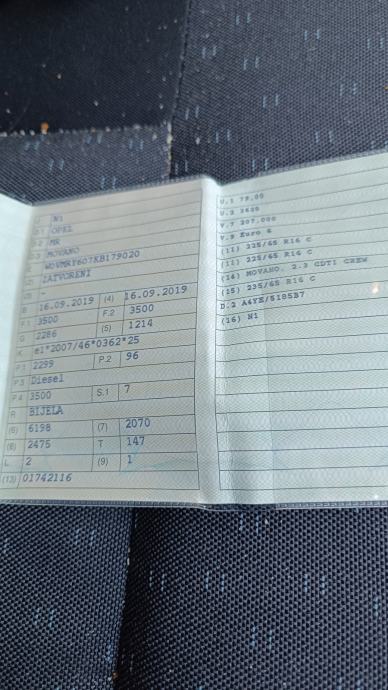 N1
D.1 OPEL
D.2 MR
D.3 MOVANO
ZATVORENI
(3) -
B 16.09.2019 (4) 16.09.2019
F.1 3500 F.2 3500
G 2286 (5) 1214
K e1*2007/46*0362*25
P.1 2299 P.2 96
P.3 Diesel
P.4 3500 S.1 7
R BIJELA
(6) 6198 (7) 2070
(8) 2475 T 147
L 2 (9) 1
(13) 01742116
V.1 79.00
V.7 207.000
V.9 Euro 6
(11) 225/65 R16 C
(11) 225/65 R16 C
(14) MOVANO, 2.3 CDTI CREW
(15) 235/65 R16 C
D.2
(16) N1